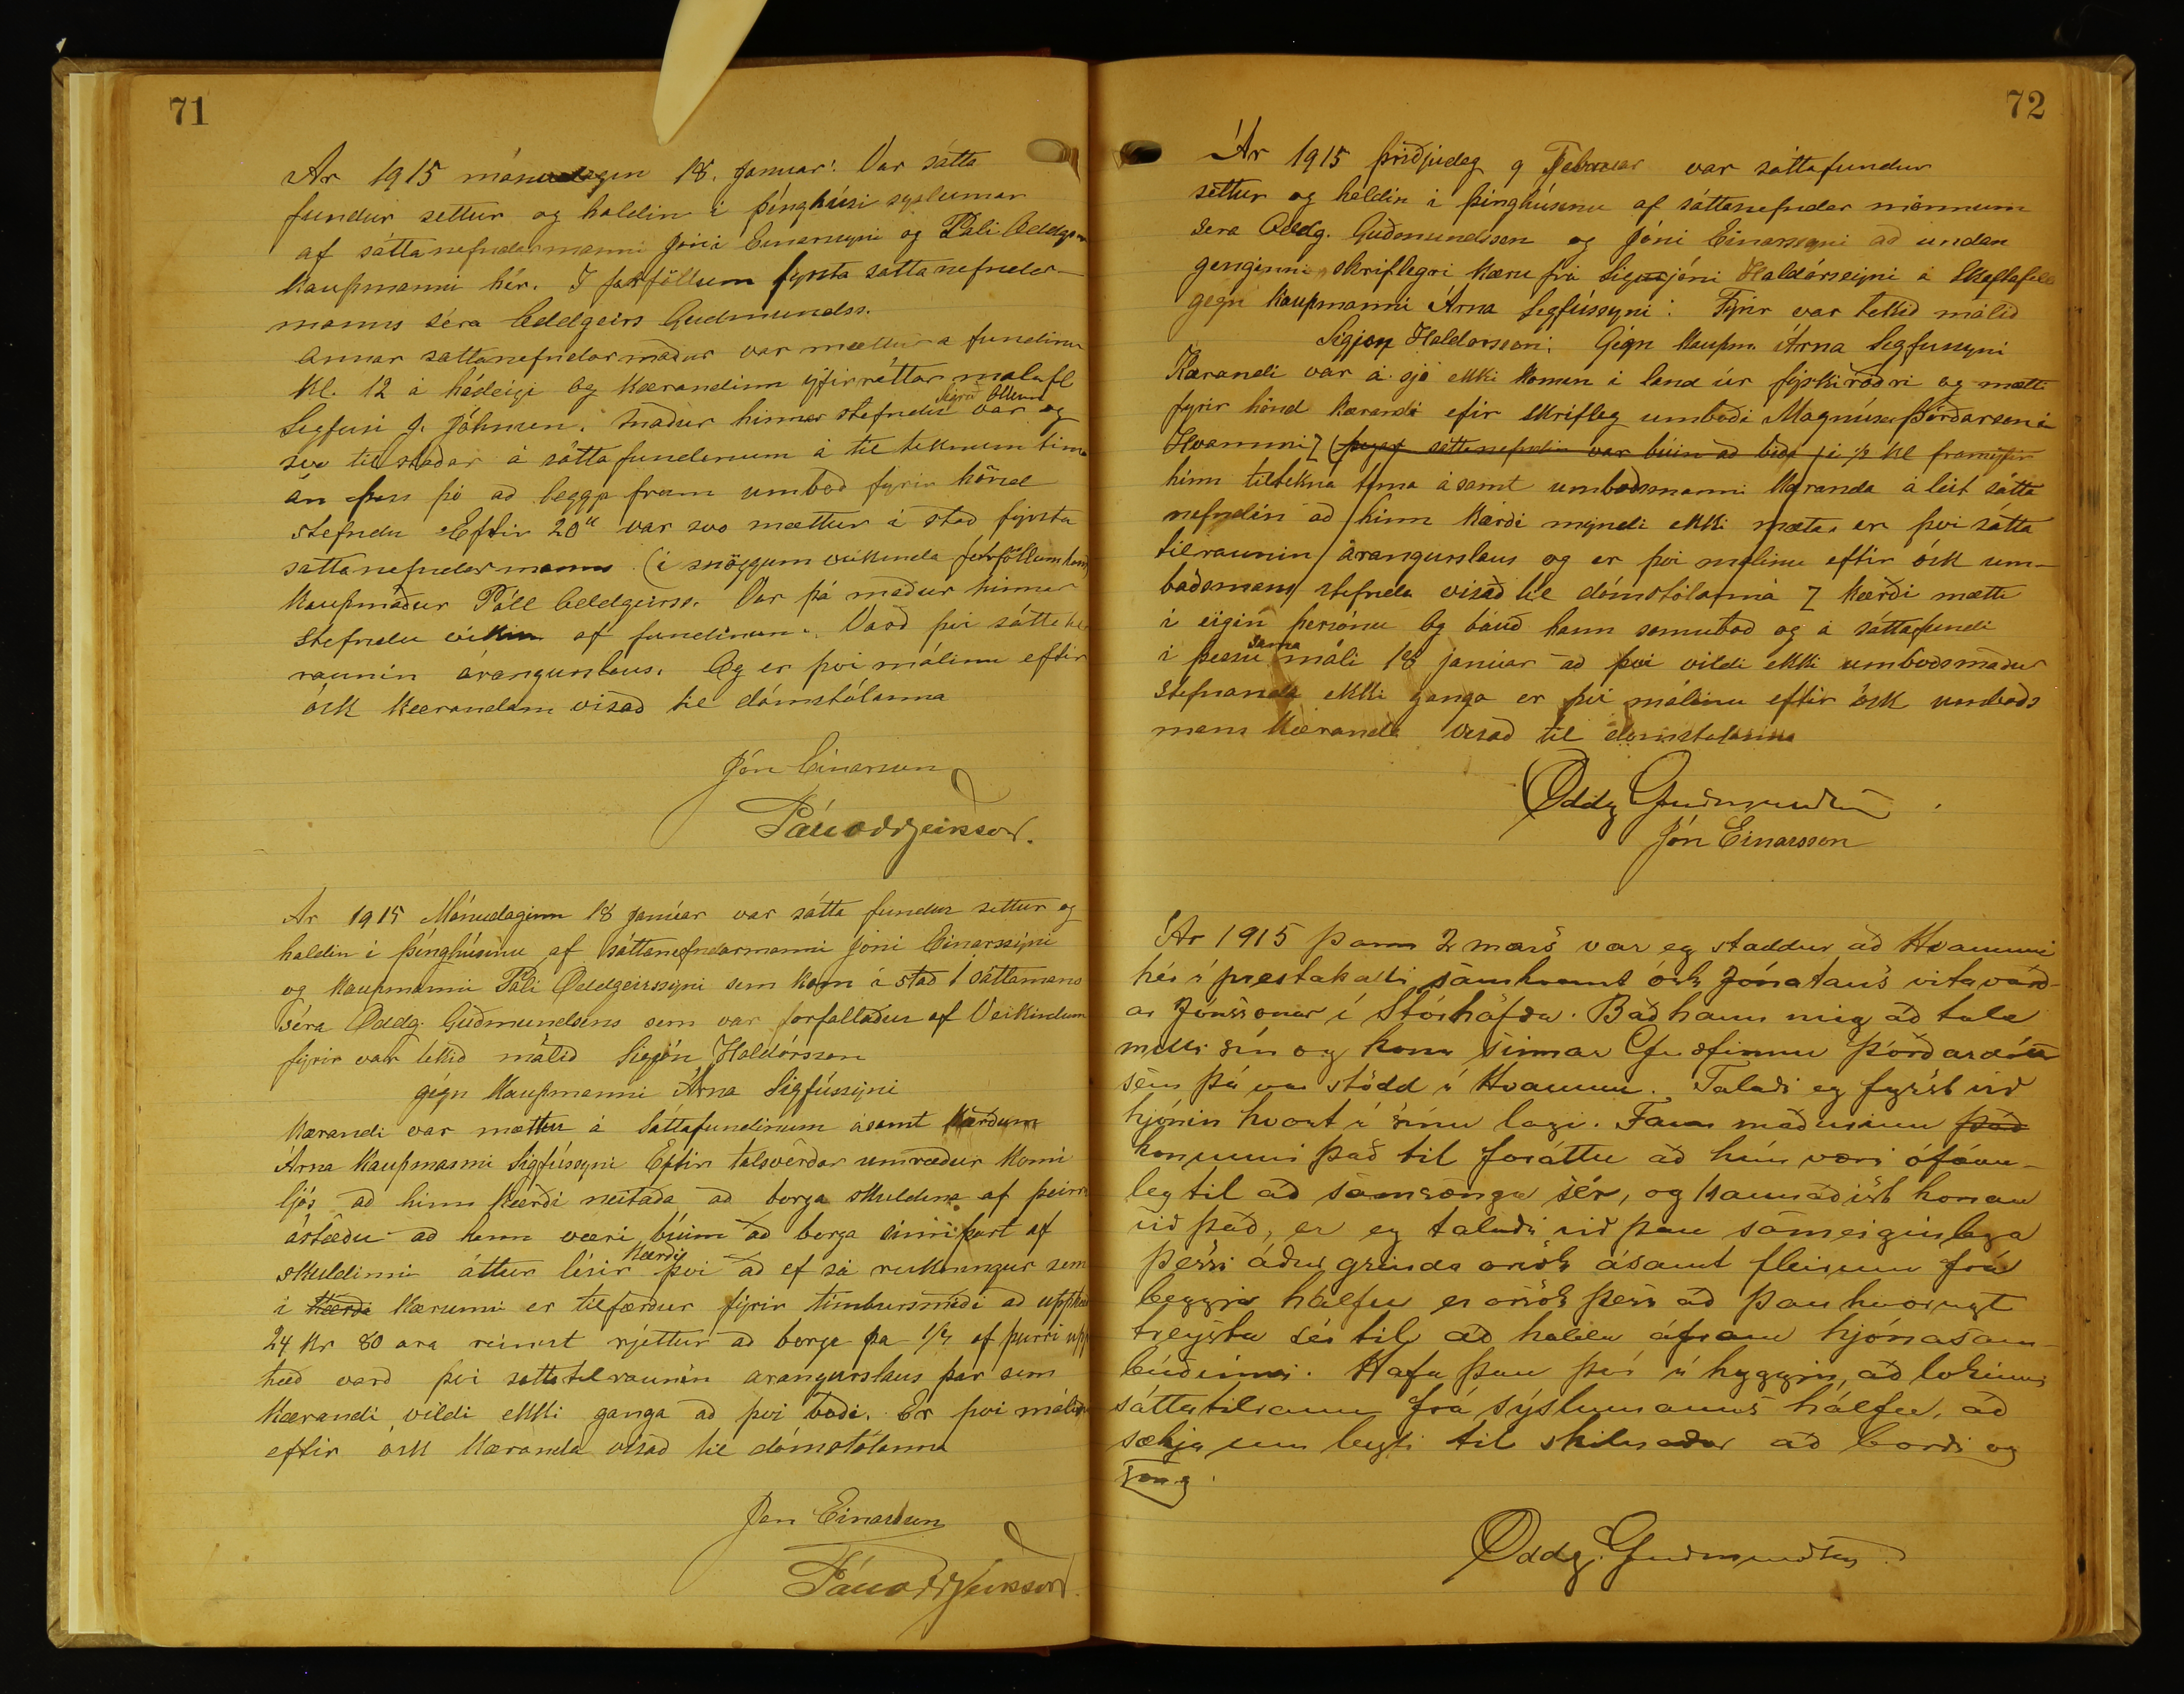 71
Ar 1915 mánudagin 18. Januar: Var sátta
fundur settur og haldin i þinghúsi syslumar
af sáttanefndarmanni Jóni Einarssyni og Páli Oddgeirs
Kaupmanni hér. I forföllum fyrsta sattanefndar-
manns séra Oddgeirs Gudmundss.
Annar sattanefndarmadur var mættur a fundinu
Kl. 12 á hádeigi og Kærandinn yfirréttar malafl
Sigfusi J. Johnsen. Maður hinnar stefndu Sigrid var og
svo til stadar á sáttafundinum á til teknum tima
án þess þó að leggja fram umbod fyrir hönd
stefndu Eftir 20" var svo mættur i stad fyrsta
sattanefndarmanns (i snöggum veikinda forföllum hans)
Kaupmadur Páll Oddgeirss. Var þá madur hinnar
stefndu vikin af fundinum. Varð þvi sáttatil
raunin árangurslaus. Og er þvi málinu eftir
ósk Kærandans visad til dómstólanna
Jón Einarsson
Páll Oddgeirsson.
Ar 1915 Mánudaginn 18 janúar var sátta fundur settur og
haldin i þinghúsinu af sáttanefndarmanni Jóni Einarssyni
og Kaupmanni Páli Oddgeirssyni sem kom i stað 1 sáttamans
séra Oddg. Guðmundsens sem var forfallaður af Veikindum
fyrir var tekið málið Sigjón Haldórsson
gegn Kaupmanni Árna Sigfússyni
Kærandi var mættur á Sáttafundinum ásamt Kærðum
Árna Kaupmanni Sigfússyni Eftir talsverðar umrædur Kom i
ljós að hinn Kærði neitaða að borga skuldina af þeirri
ástædu að hann væri búinn að borga sinn part af
skuldinni áttur lisir Kærði þvi að ef sá reikningur sem
i Kærda Kærunni er tilfærdur fyrir timbursmidi að upphæd
24 Kr 80 ara reinist rjettur að borga þa 1/2 af þurri upp
hæd varð þvi sattatilraunin arangurslaus þar sem
Kærandi vildi ekki ganga að þvi boði. Er þvi málinu
eftir ósk Kæranda visad til dómstólanna
Jón Einarsson
Páll Oddgeirsson.
72
Ár 1915 þriðjudag 9 Februar var sáttafundur
settur og haldin i þinghúsinu af sáttanefndar mönnum
sera Oddg. Guðmundssen og Jóni Einarssyni að undan
genginni skriflegri Kæru frá Sigurjóni Haldórssyni á Skaftafelli
gegn Kaupmanni Árna Sigfússyni: Fyrir var tekið málið
Sigjon Haldorsson: Gegn Kaupm. Árna Sigfussyni
Kærandi var á sjó ekki komin i land úr fiskiróðri og mætti
fyrir hönd kæranda efir skrifleg umboði Magnúsar Þórðarson i
Hvammi Z (þegar sáttanefndin var búin að bíða i 1/2 kl framyfir
hinn tiltekna tima ásamt umboðsmanni Kæranda á leit sátta
nefndin að hinn Kærði myndi ekki mæta, er þvi sátta
tilraunin árangurslaus og er þvi málinu eftir ósk um-
boðsmans stefnda visað til dómstólanna Z Kærði mætti
i eigin persónu og bauð hann somubod og á sáttafundi
i þessu sama máli 18 janúar að þvi vildi ekki umboðsmadur
stefnanda ekki ganga er þvi málinu eftir ósk umboðs
mans Kæranda visað til domstolanna
Oddg Guðmundsen
Jón Einarsson
Ár 1915 þann 2 mars var eg staddur að Hvammi
hér i prestakalli samkvæmt ósk Jónatans vitavarð-
ar Jónssonar í Stórhöfða. Bað hann mig að tala
milli sín og konu sinnar Guðfinnu Þórðardóttur
sem þá var stödd í Hvammi. Talaði eg fyrst við
hjónin hvort í sínu lagi. Fann maðurinn það
konunni það til foráttu að hún væri ófáan-
leg til að samsænga sér, og kannaðist konan
við það, er eg talaði við þau sameiginlega
Þessi áður greinda orsök ásamt fleirum frá
beggja hálfu er orsök þess að þau hvorugt
treysta sér til að halda áfram hjónasam-
búðinni. Hafa þau því í hyggju, að lokinni
sáttatilraun frá sýslumanns hálfu, að
sækja um leyfi til skilnaðar að borði og
sæng.
Oddg. Guðmundsen